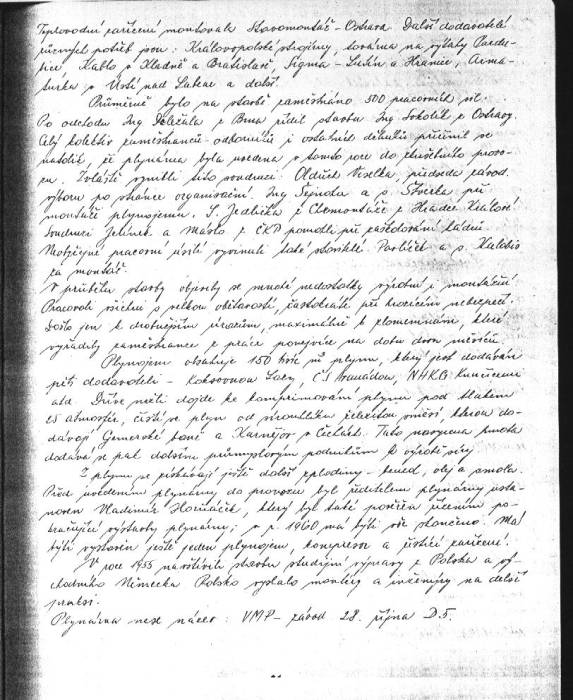 zařízení montovala Stavomontáž - Ostrava Další dodavatelé
různých potřeb jsou: Královopolské strojírny, továrna na výtahy Pardu-
bice, Kablo v Kladně a Bratislavě, Sigma - Lutín a Hranice, Arma-
túrka v Ústí nad Labem a další.
Průměrně bylo na stavbě zaměstnáno 500 pracovních sil.
Po odchodu Ing z Brna řídil stavbu Ing Sokolík z Ostravy.
Celý kolektiv zaměstnanců - odborníků i ostatních dělníků přičinil se
natolik, že plynárna byla uvedena v tomto roce do zkušebního provo-
zu. Zvláště vynikli tito soudruzi: Oldřich Veselka, předseda závod.
výboru po stránce organisační. Ing a s. při
montáži plynojemu. S. Jedlička z Chemontáže z Hradce Králové
Soudruzi Jelínek a Máslo z ČKD pomohli při
Neobyčejné pracovní úsilí vyvinuli také Pavlíček a s.
za montáž.
V průběhu stavby objevily se mnohé nedostatky výrobní i montážní
Pracovali všichni s velkou obětavostí, častokráte při hrozícím nebezpečí.
Došlo jen k drobnějším úrazům, maximálně k zlomeninám, které
vyřadily zaměstnance z práce nanejvýše na dobu dvou měsíců.
Plynojem obsahuje 150 tisíc m³ plynu, který jest dodáván
pěti dodavateli - Koksovnou Lazy, ČS Armádou, NHKG Kunčicemi
atd. Dříve nežli dojde ke komprimování plynu pod tlakem
25 atmosfér, čistí se plyn od sirouhlíku železitou směsí, kterou do-
dávají Gemerské baně a v Čechách. Tato nasycená hmota
dodává se pak dalším průmyslovým podnikům k výrobě síry
Z plynu se získávají ještě další zplodiny - benzol, olej a smola.
Před uvedením plynárny do provozu byl ředitelem plynárny usta-
noven Vladimír Horňáček, který byl také pověřen řízením po-
kračující výstavby plynárny; v r. 1960 má býti vše skončeno. Má
býti vystavěn ještě jeden plynojem, kompresor a čistící zařízení.
V roce 1955 navštívily stavbu studijní výpravy z Polska a vý-
chodního Německa Polsko vyslalo montéry a inženýry na delší
praksi.
Plynárna nese název: VMP - závod 28. října D. 5.